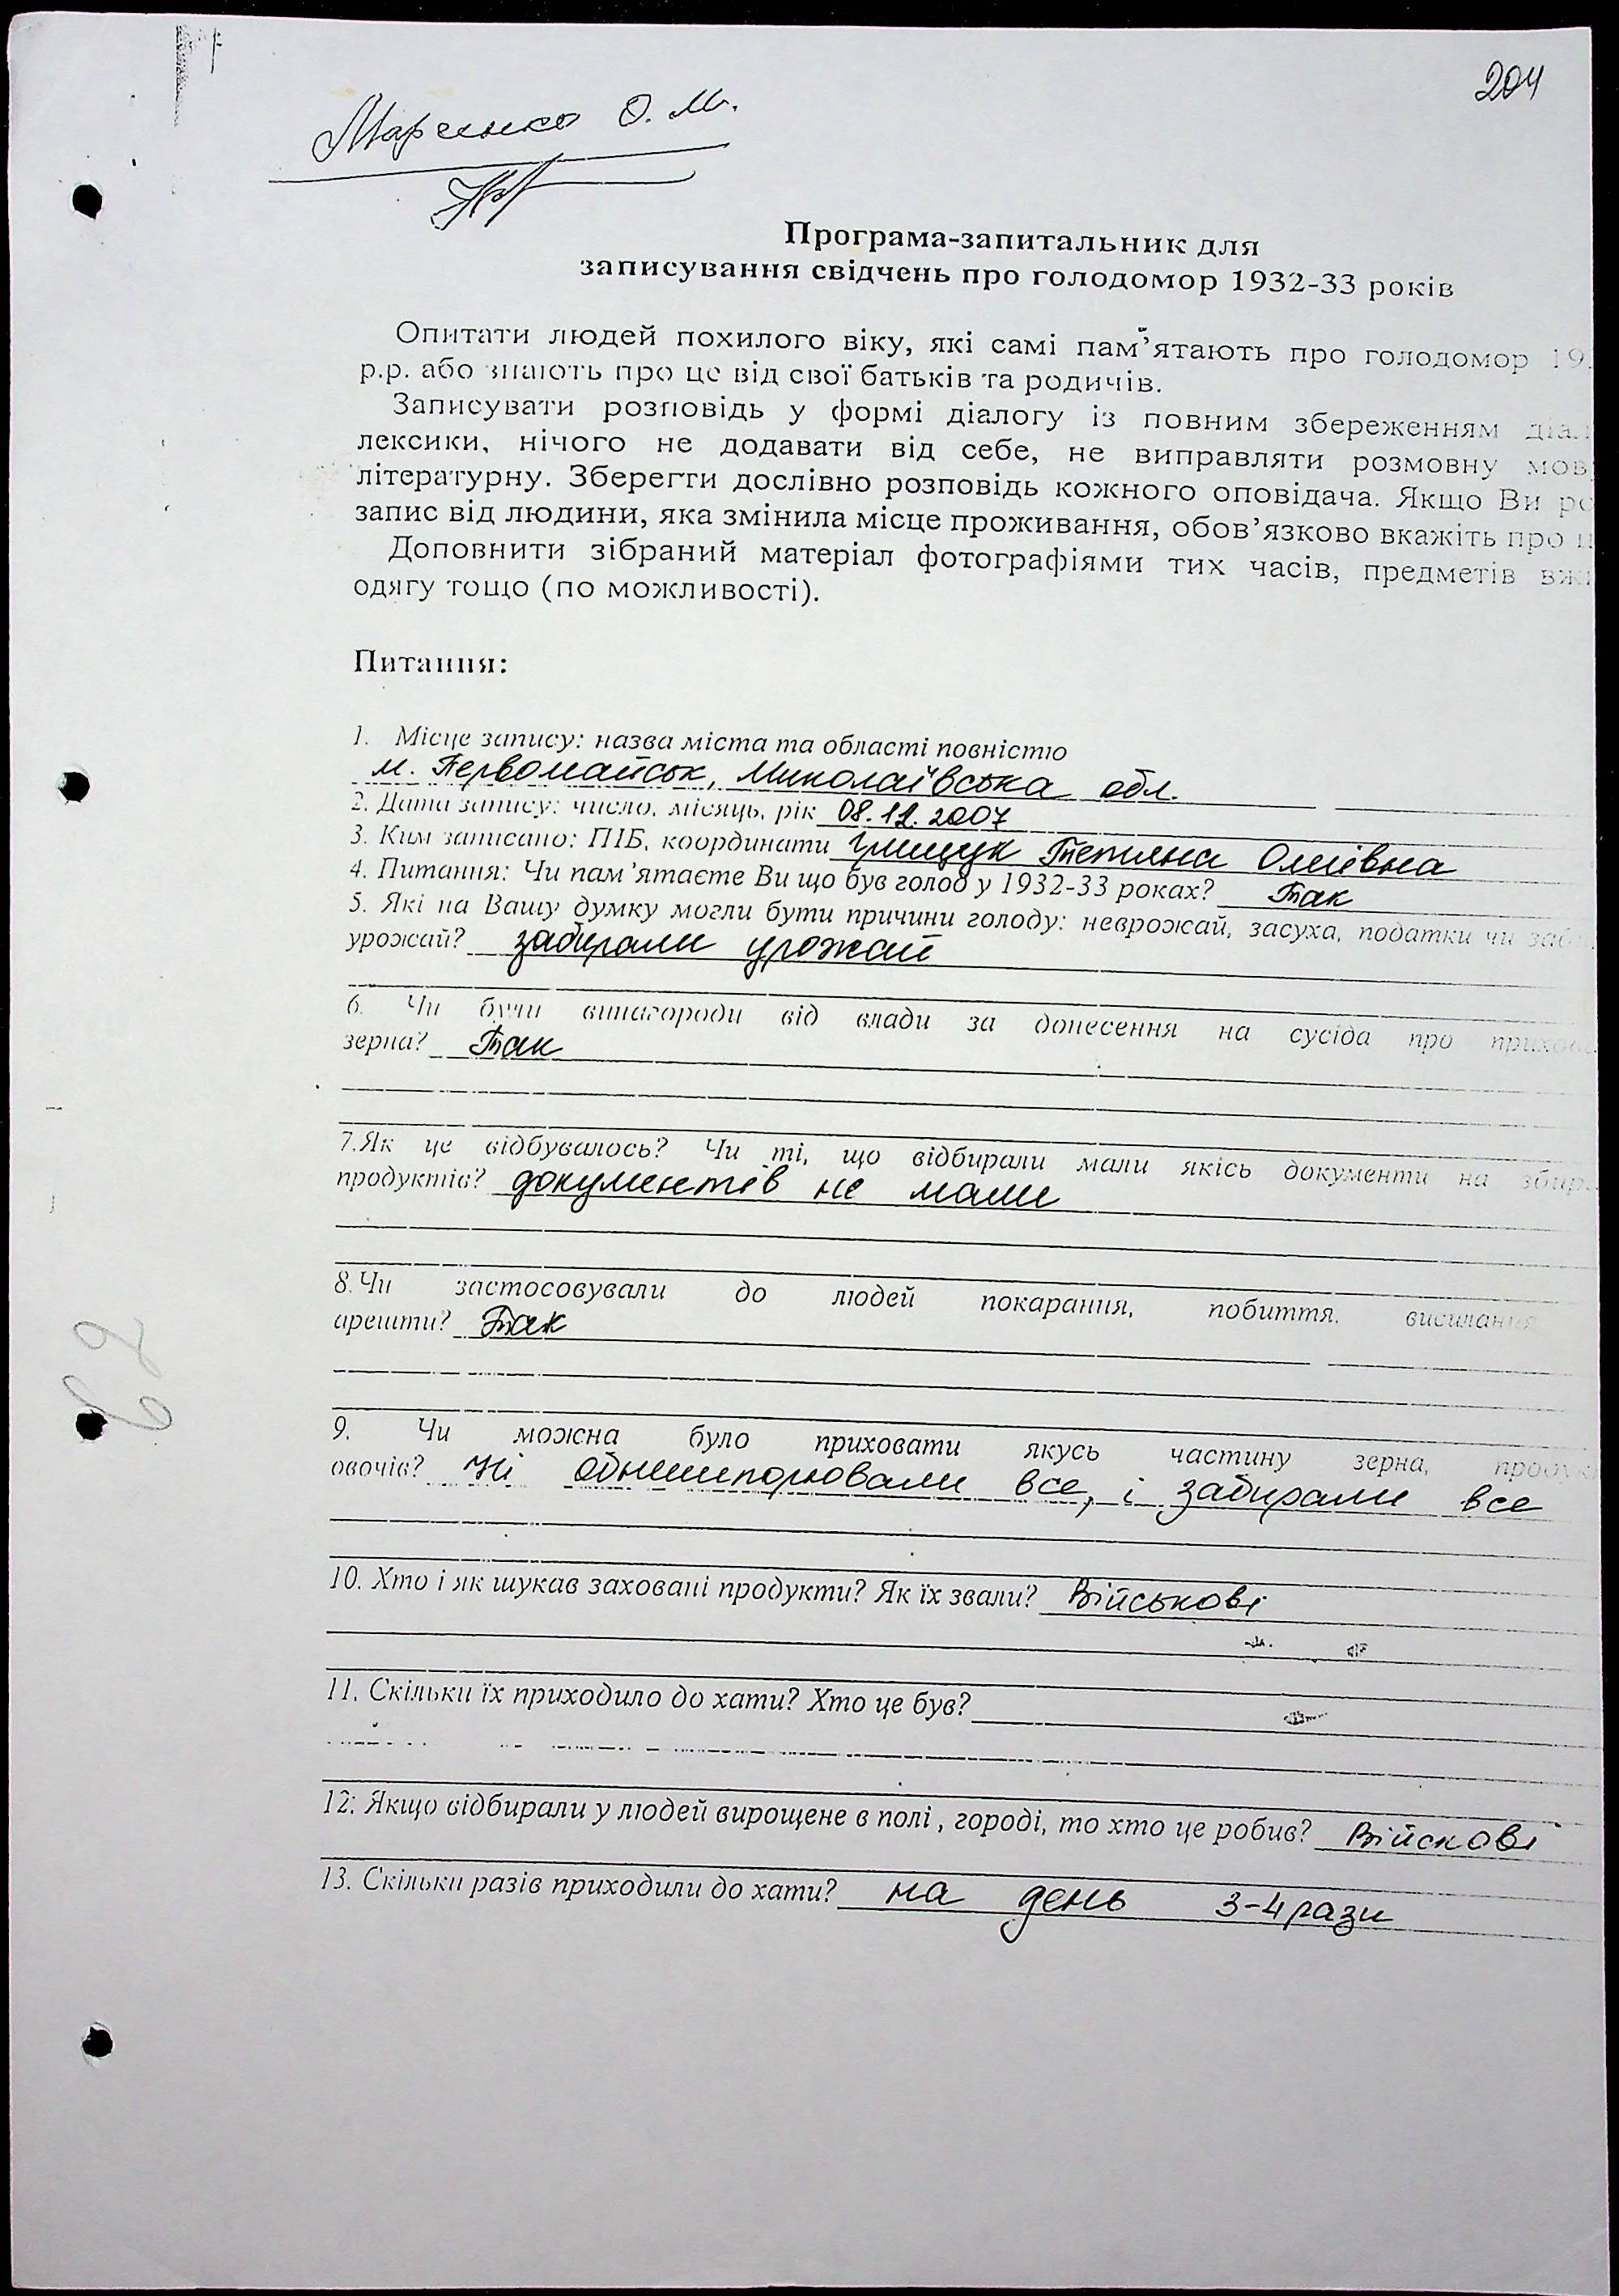 204
Марченко О. М.
Програма-запитальник для
записування свідчень про голодомор 1932-33 років
Опитати людей похилого віку, які самі пам’ятають про голодомор 19
р.р. або знають про це від свої батьків та родичів.
Записувати розповідь у формі діалогу із повним збереженням діал
лексики, нічого не додавати від себе, не виправляти розмовну мов
літературну. Зберегти дослівно розповідь кожного оповідача. Якщо Ви ро
запис від людини, яка змінила місце проживання, обов’язково вкажіть про ц
Доповнити зібраний матеріал фотографіями тих часів, предметів вжи
одягу тощо (по можливості).
Питання:
1. Місце запису: назва міста та області повністю
м. Первомайськ, Миколаївська обл.
2. Дата запису: число, місяць, рік 08.12.2007
3. Ким записано: ПІБ, координати Грищук Тетяна
4. Питання: Чи пам’ятаєте Ви що був голод у 1932-33 роках? Так
5. Які на Вашу думку могли бути причини голоду: неврожай, засуха, податки чи заб
урожай? забирали урожай
6. Чи були винагороди від влади за донесення на сусіда про прихов
зерна? Так
7.Як це відбувалось? Чи ті, що відбирали мали якісь документи на збир
продуктів? документів не мали
8.Чи застосовували до людей покарання, побиття, висилання
арешти? Так
9. Чи можна було приховати якусь частину зерна, продук
овочів? Ні все, і забирали все
10. Хто і як шукав заховані продукти? Як їх звали? Військові
11. Скільки їх приходило до хати? Хто це був?
12. Якщо відбирали у людей вирощене в полі , городі, то хто це робив? Війскові
13. Скільки разів приходили до хати? на день 3-4 рази
62